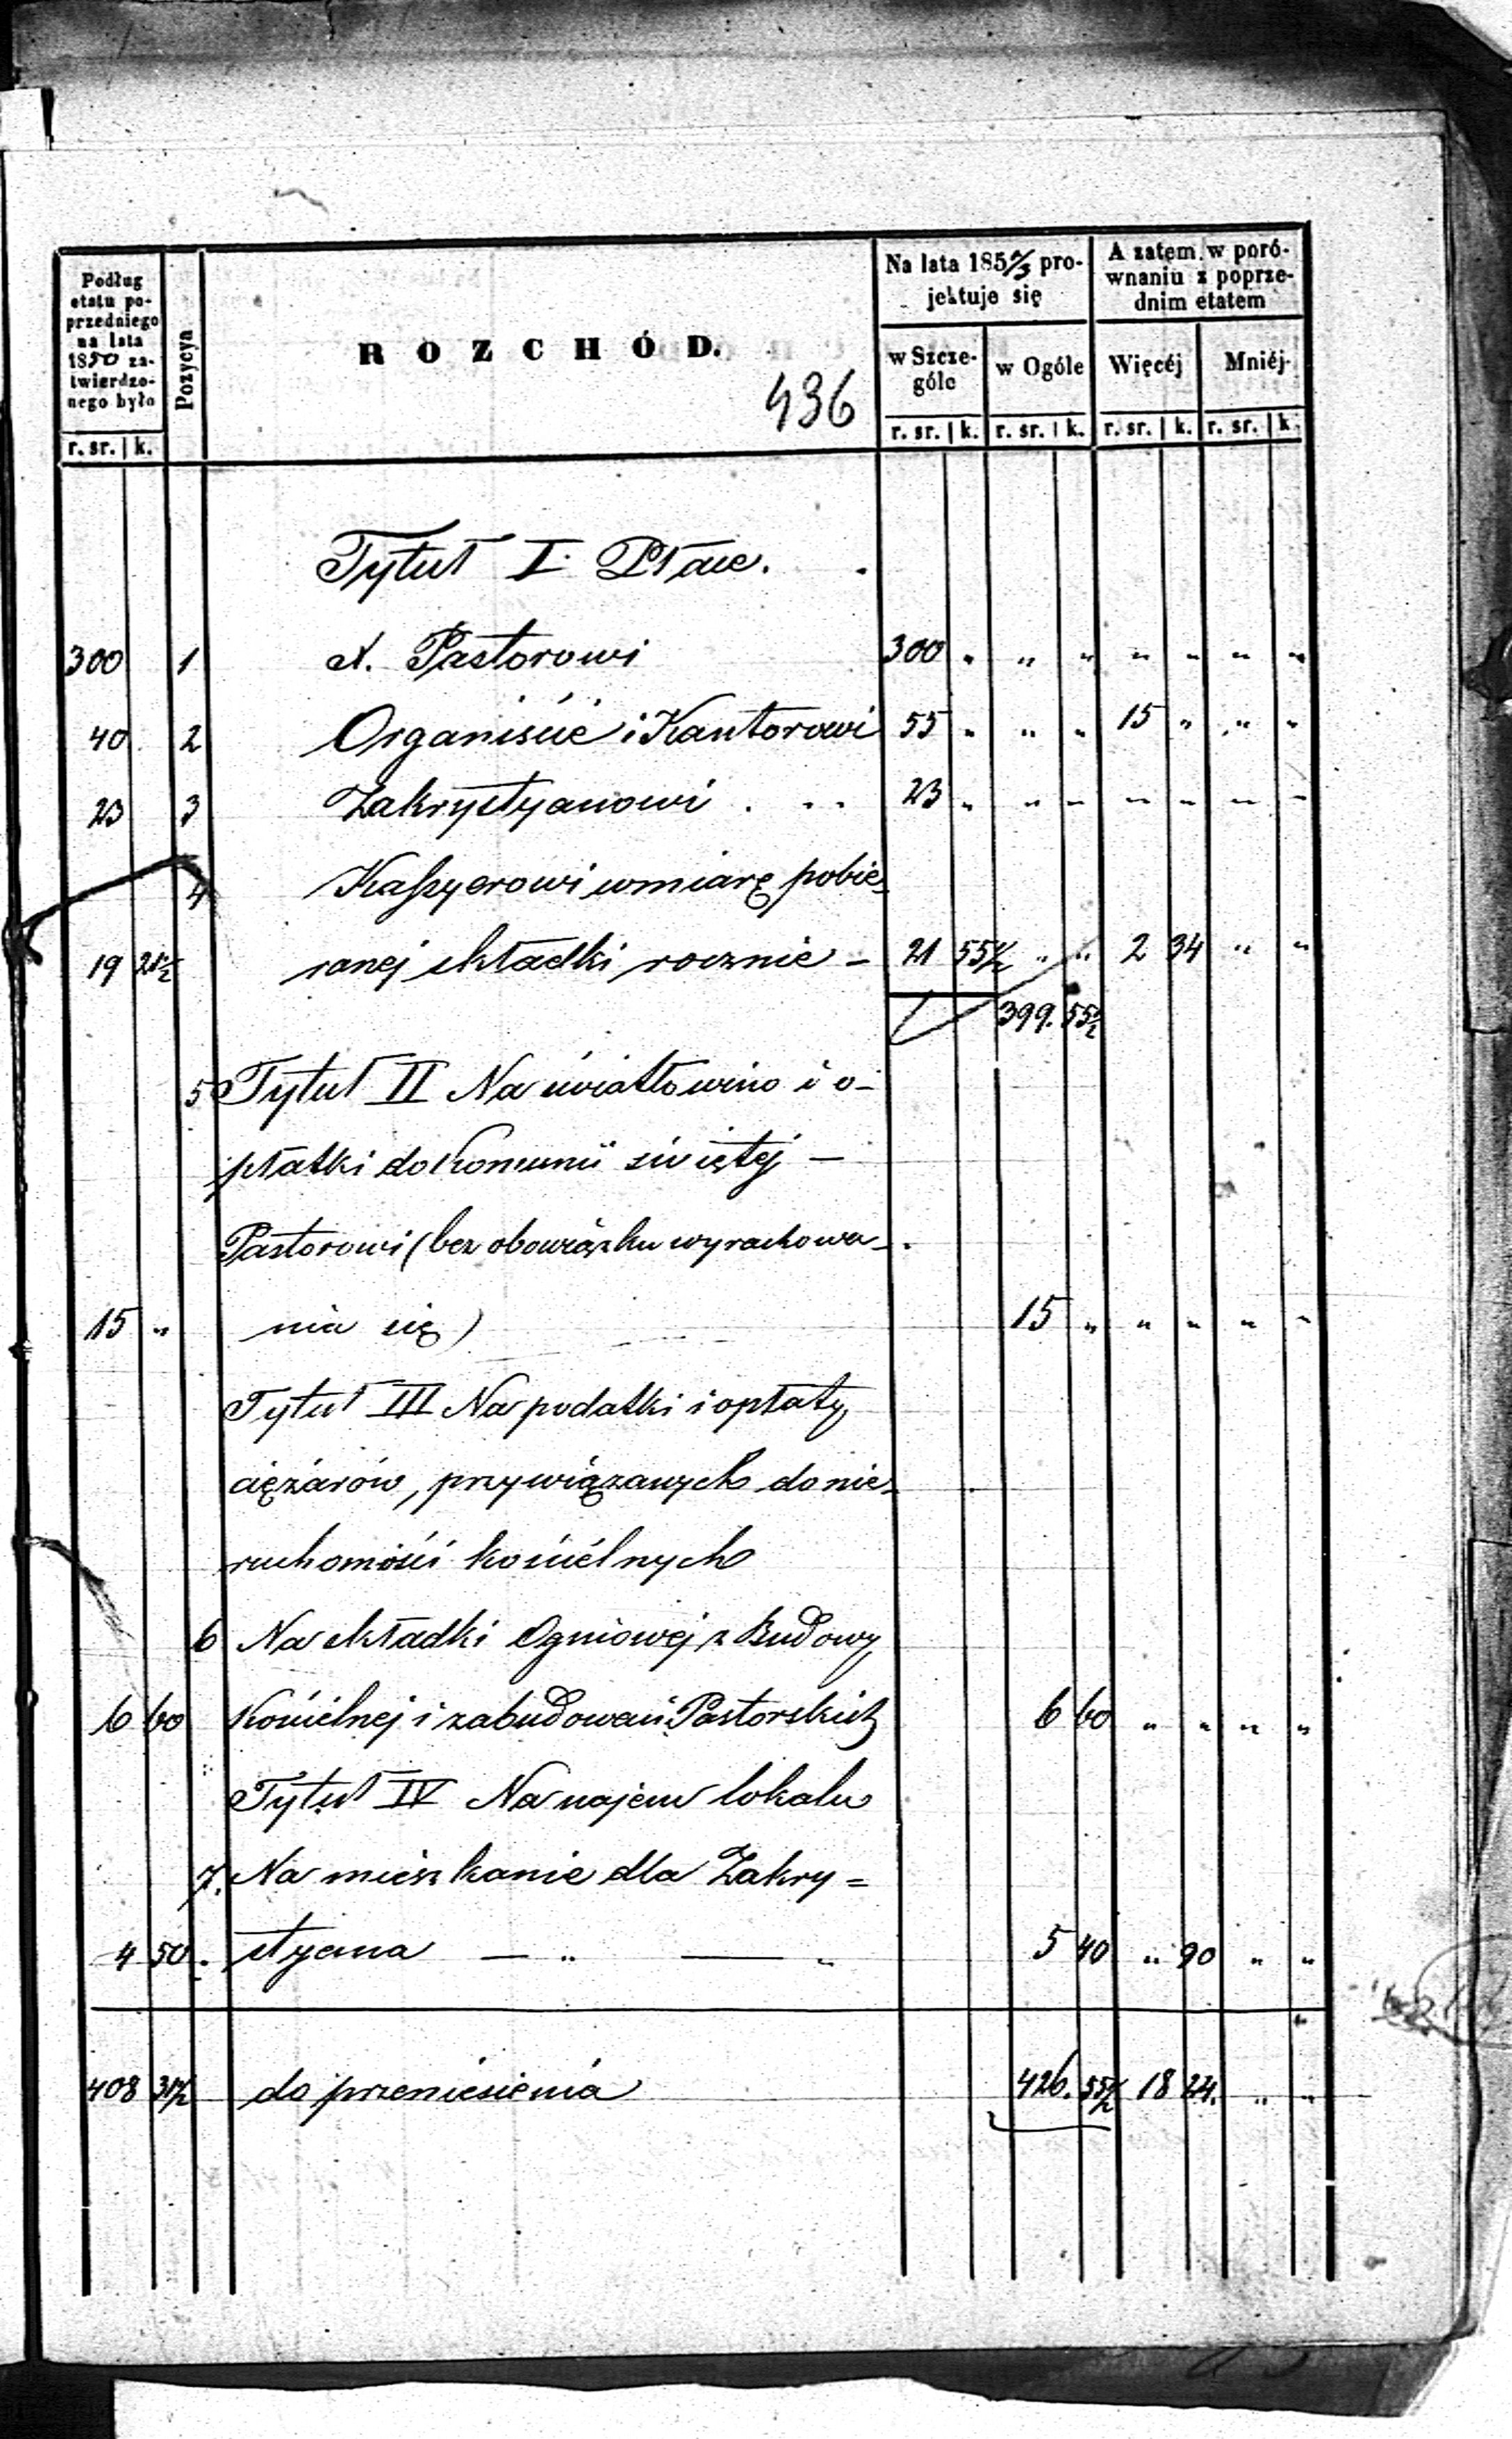 Podług etatu poprzedniego na lata 1850 zatwierdzonego było
Pozycya
ROZCHÓD.
436
Na lata 185 2/3 projektuje się
A zatem w porównaniu z poprzednim etatem
w Szczególe
w Ogóle
Więcéj
Mniéj
r. sr. k. r. sr. k. r. sr. k. r. sr. k. r. sr. k.
Tytuł I. Płace.
300 1 X. Pastorowi 300 " " " " " " "
40 2 Organiście i Kantorowi 55 " " " 15 " " "
23 3 Zakrystyanowi . . . 23 " " " " " " "
4 Kaszyerowi w miarę pobie-
19 21½ ranej składki rocznie - 21 55½ " " 2 34 " "
399. 55½
5 Tytuł II Na światło wino i o-
płatki do Komunii świętej —
Pastorowi (bez obowiązku wyrachowa-
15 " nia się) 15 " " " " "
Tytuł III Na podatki i opłaty
ciężarów, przywiązanych do nie-
ruchomości kościelnych
6 Na składki Ogniowej z Budowy
6 60 Kościelnej i zabudowań Pastorskich 6 60 " " " "
Tytuł IV Na najem lokalu
7. Na mieszkanie dla Zakry=
4 50 styana — " — " 5 40 " 90 " "
408 31½ do przeniesienia 426. 55½ 18 24. " "